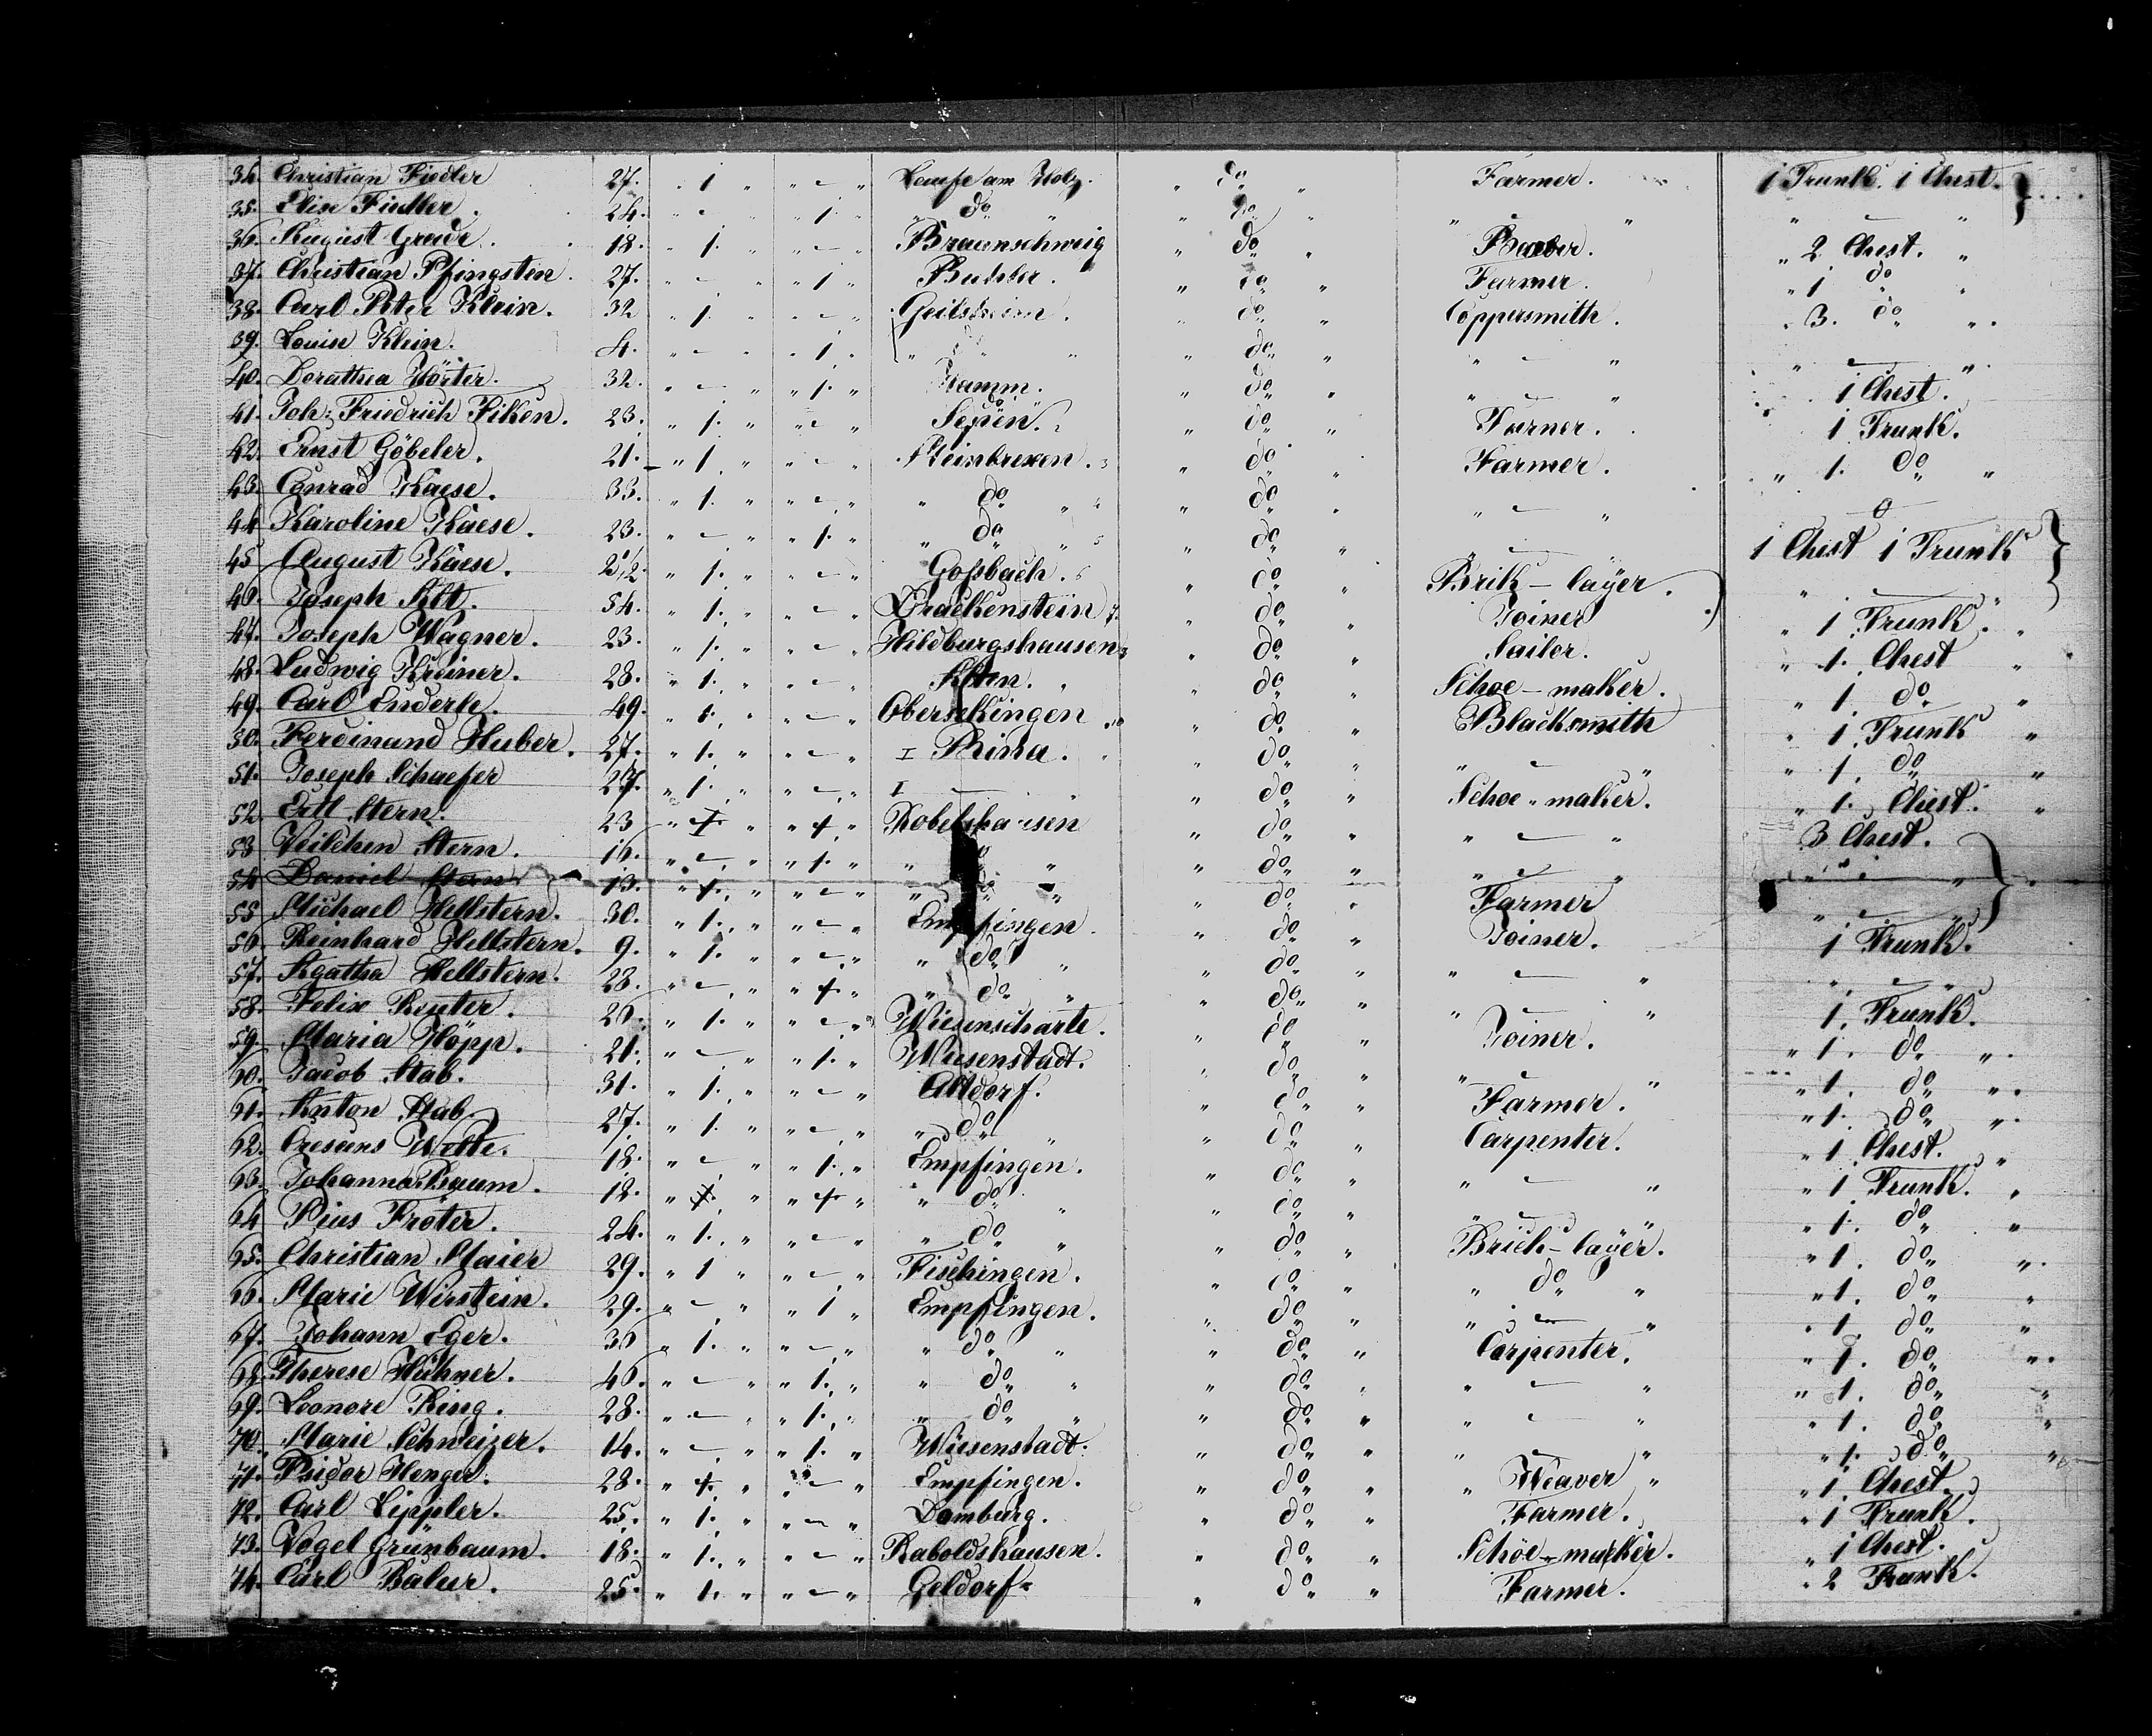 34. Christian Fiedler 27. " 1 " " – " Laufe am Holz. " do " Farmer. 1 Trunk. 1 Chest.
35. Elise Fiedler. 24. " – " " 1. " " do " " do " " – " " – "
36. August Grade. 18. " 1. " " – " Braunschweig " do " Barber. " 2 Chest. "
37. Christian Pfingsten. 27. " – " " 1 " " do " Farmer. " 1 do "
38. Carl Peter Klein. 32 " 1. " " – " Geilsheim. " do " Coppersmith. " 3. do "
39. Louise Klein. 4. " – " " 1. " " do " " do " " – " " – "
40. Dorathea Hörter. 32. " – " " 1. " Hamm. " do " " – " 1 Chest.
41. Joh: Friedrich Filken. 23. " 1. " " – " " do " Farmer. 1 Trunk.
42. Ernst Göbeler. 21. " 1. " " – " Steinbrexen. " do " Farmer. " 1. do "
43. Conrad Kaese. 33. " 1. " " – " " do " " do " " – " 0
44. Karoline Kaese. 23. " – " " 1. " " do " " do " " – " 1 Chest 1 Trunk
45. August Kaese. 2 1/2. " 1. " " – " Gossbach. " do " Brik-layer. " – "
46. Joseph Alt. 54. " 1. " " – " Drackenstein " do " Joiner " 1 Trunk. "
47. Joseph Wagner. 23. " 1. " " – " Hildburgshausen " do " Sailor. " 1. Chest "
48. Ludwig Kreiner. 28. " 1. " " – " " do " Schoe-maker. " 1. do "
49. Carl Enderle. 49. " 1. " " – " Oberselkingen " do " Blacksmith " 1. Trunk "
50. Ferdinand Huber. 27. " 1. " " – " I Rina. " do " " – " " 1. do "
51. Joseph Schaefer 27. " 1. " " – " I – " " do " Schoe-maker. " 1. Chest. "
52. Ertl Stern. 23 " 1. " " 1. " Robelshausen " do " " – " 3 Chest.
53 Veilchen Stern. 16. " – " " 1. " " do " " do " " – " " – "
54 Daniel Stern 13. " 1. " " – " " do " " do " Farmer " – "
55 Michael Hellstern. 30. " 1. " " – " Empfingen. " do " Joiner. 1 Trunk.
56. Reinhard Hellstern. 9. " 1. " " – " " do " " do " " – " " – "
57. Agatha Hellstern. 28. " – " " 1. " " do " " do " " – " 1. Trunk.
58. Felix Reuter. 26. " 1. " " – " Wiesenscharte. " do " Joiner. " 1. do "
59. Maria Höpp. 21. " – " " 1. " Wiesenstadt. " do " " – " " 1. do "
60. Jacob Stab. 31. " 1. " " – " Altdorf. " do " Farmer. " 1. do "
61. Anton Stab. 27. " 1. " " – " " do " " do " Carpenter. " 1 Chest. "
62. Welte. 18. " – " " 1. " Empfingen. " do " " – " " 1 Trunk. "
63. Johanna Baum. 12. " 1. " " 1. " " do " " do " " – " " 1. do "
64 Pius Fröter. 24. " 1. " " – " " do " " do " Brick-layer. " 1. do "
65. Christian Maier 29. " 1 " " – " Fischingen. " do " " do " " 1. do "
66. Marie Wirstein. 29. " – " " 1 " Empfingen. " do " " – " " 1. do "
67. Johann Eger. 36 " 1. " " – " " do " " do " Carpenter. " 1. do "
68. Therese Hühner. 46. " – " " 1. " " do " " do " " – " " 1. do "
69. Leonore Ring. 28. " – " " 1. " " do " " do " " – " " 1. do "
70. Marie Schweizer. 14. " – " " 1. " Wiesenstadt. " do " " – " " 1. do "
71. Isidor Henger. 28. " 1. " " – " Empfingen. " do " " Weaver " " 1. Chest.
72. Carl Lippler. 25. " 1. " " – " Damburg. " do " Farmer. " 1 Trunk.
73. Vogel Grünbaum. 18. " 1. " " – " Raboldshausen. " do " Schoe-marker. " 1 Chest.
74. Carl Balur. 25. " 1. " " – " Geldorf " do " Farmer. " 2 Trunk.